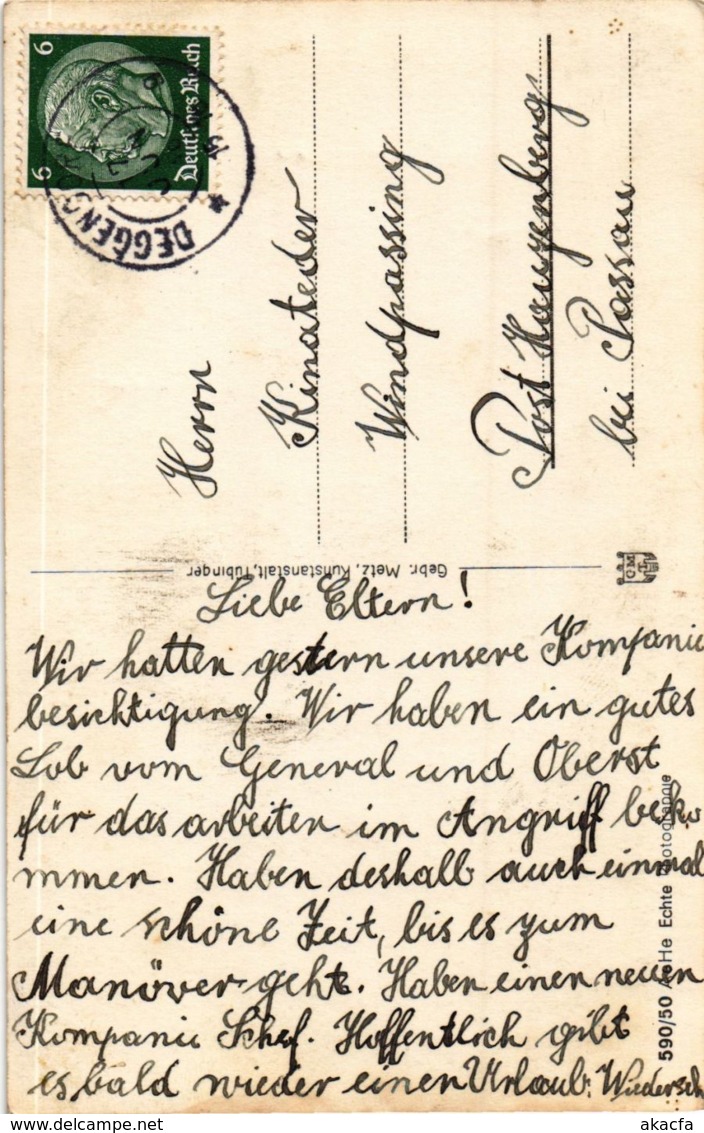 6 6
Deutsches Reich
DEGGENDORF
Herrn
Kinateder
Windpassing
Post Hauzenberg
bei Passau
Gebr. Metz, Kunstanstalt, Tübingen
GMT
Liebe Eltern!
Wir hatten gestern unsere Kompanie
besichtigung. Wir haben ein gutes
Lob vom General und Oberst
für das arbeiten im Angriff beko
mmen. Haben deshalb auch einmal
eine schöne Zeit, bis es zum
Manöver geht. Haben einen neuen
Kompanie Schef. Hoffentlich gibt
es bald wieder einen Urlaub. Wiedersch
590/50 AcHe Echte Photographie
akacfa